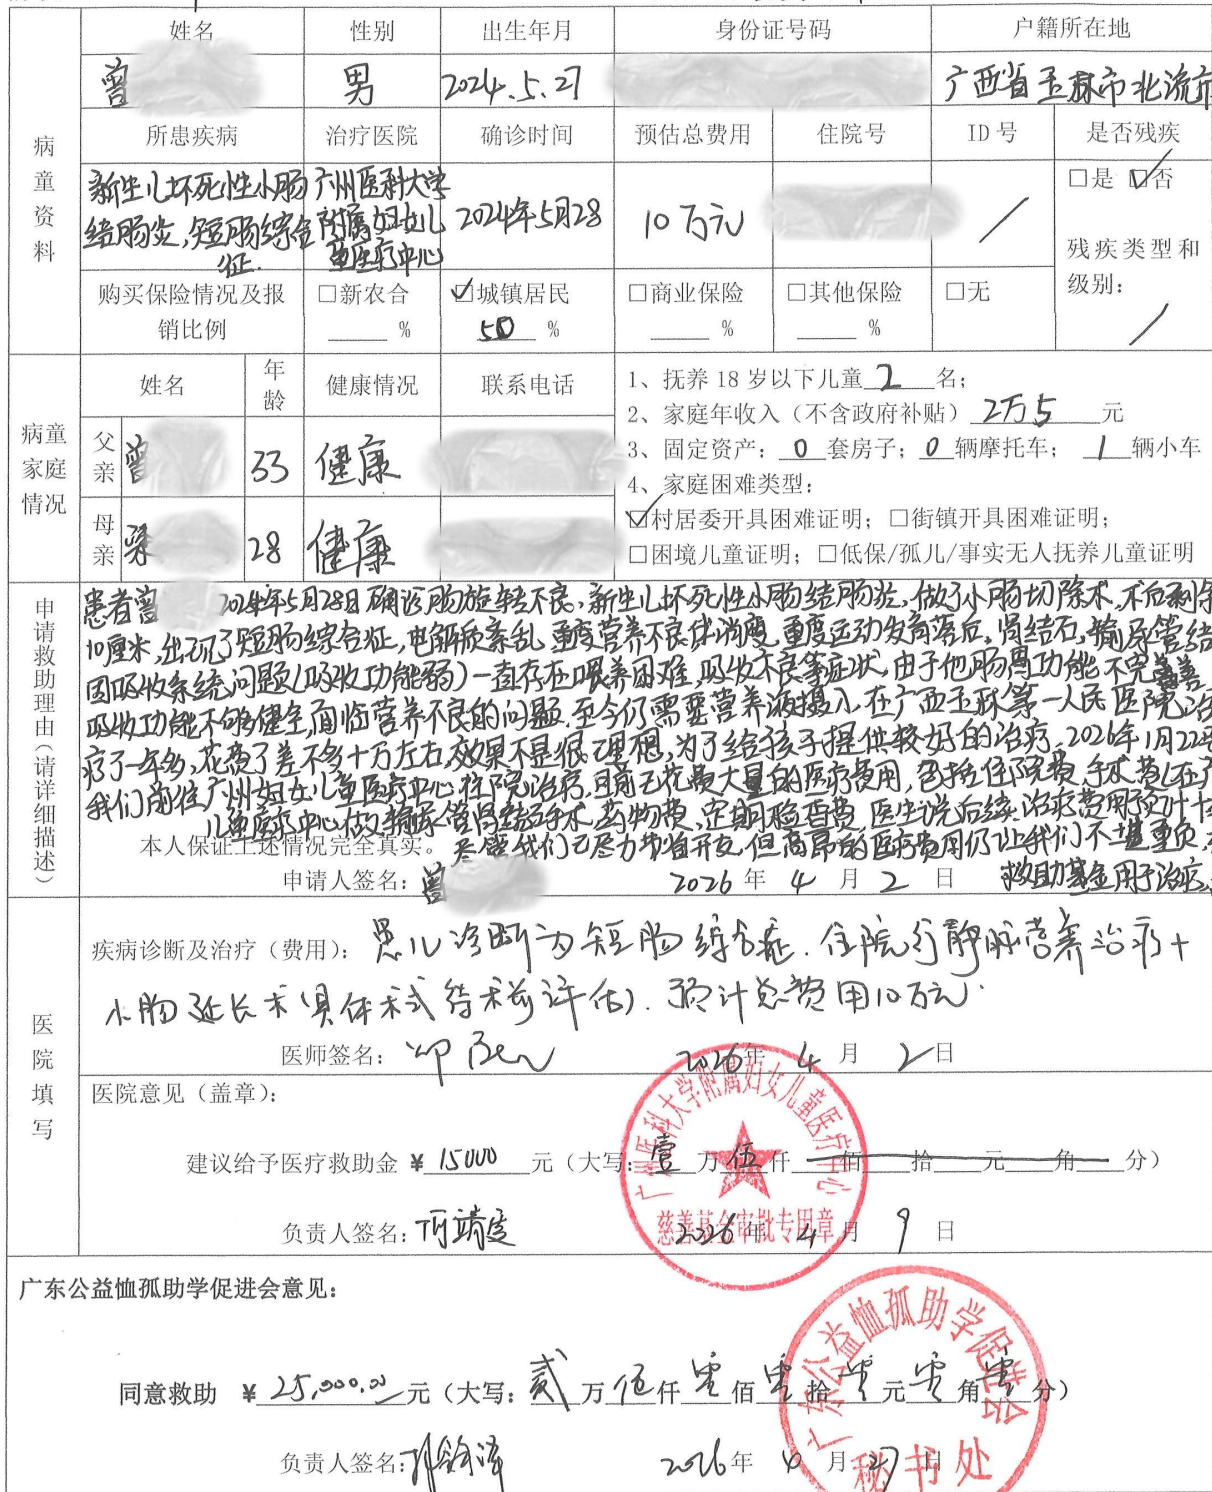 姓名 性别 出生年月 身份证号码 户籍所在地
曾 男 2024.5.27 广西省玉林市北流市
病童资料
所患疾病 治疗医院 确诊时间 预估总费用 住院号 ID号 是否残疾
新生儿坏死性小肠结肠炎,短肠综合征. 广州医科大学附属妇女儿童医疗中心 2024年5月28 10万元 / □是 ☑否
残疾类型和级别: /
购买保险情况及报销比例 □新农合 % ☑城镇居民 50 % □商业保险 % □其他保险 % □无
病童家庭情况
姓名 年龄 健康情况 联系电话
父亲 曾 33 健康
母亲 梁 28 健康
1、抚养18岁以下儿童 2 名;
2、家庭年收入(不含政府补贴) 2万5 元
3、固定资产: 0 套房子; 0 辆摩托车; 1 辆小车
4、家庭困难类型:
☑村居委开具困难证明; □街镇开具困难证明;
□困境儿童证明; □低保/孤儿/事实无人抚养儿童证明
申请救助理由(请详细描述)
患者曾 2024年5月28日确诊肠旋转不良,新生儿坏死性小肠结肠炎,做了小肠切除术,术后剩余
10厘米,出现了短肠综合征,电解质紊乱,重度营养不良伴消瘦,重度运动发育落后,肾结石,输尿管结
因吸收系统问题(吸收功能弱)一直存在喂养困难,吸收不良等症状,由于他肠胃功能不完善
吸收功能不够健全,面临营养不良的问题.至今仍需要营养液摄入.在广西玉林第一人民医院治
疗了一年多,花费了差不多十万左右,效果不是很理想,为了给孩子提供较好的治疗,2026年1月22
我们前往广州妇女儿童医疗中心住院治疗,目前已花费大量的医疗费用,包括住院费,手术费(在广
儿童医疗中心做了输尿管肾结石手术,药物费,定期检查费,医生说后续治疗费用预计十
本人保证上述情况完全真实。 尽管我们已尽力节省开支,但高昂的医疗费用仍让我们不堪重负,
申请人签名: 曾 2026 年 4 月 2 日 救助基金用于治疗
医院填写
疾病诊断及治疗(费用): 患儿诊断为短肠综合症.住院行静脉营养治疗+
小肠延长术(具体术式待术前评估).预计总费用10万元.
医师签名: 2026 年 4 月 2 日
医院意见(盖章):
广州医科大学附属妇女儿童医疗中心
建议给予医疗救助金 ¥ 15000 元(大写: 壹 万 伍 仟 佰 拾 元 角 分)
慈善基金审批专用章
负责人签名: 2026 年 4 月 9 日
广东公益恤孤助学促进会意见:
广东公益恤孤助学促进会
同意救助 ¥ 25,000.00 元(大写: 贰 万 伍 仟 零 佰 零 拾 零 元 零 角 零 分)
秘书处
负责人签名: 2026 年 月 27 日